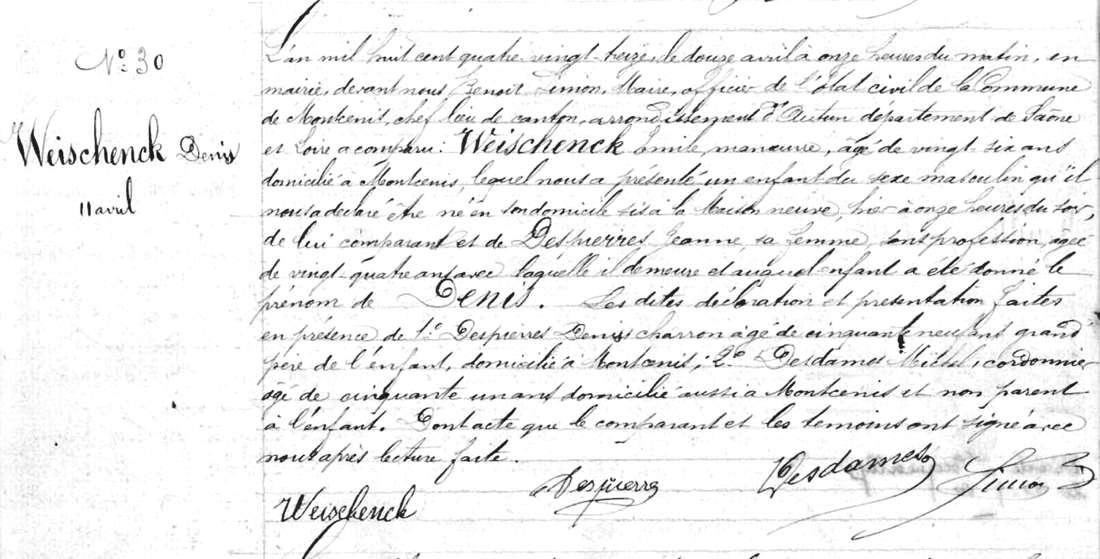 N° 30
Weischenck Denis
11 avril
L'an mil huit cent quatre-vingt-treize, le douze avril à onze heures du matin, en
mairie, devant nous Benoit Simon, Maire, officier de l'état civil de la Commune
de Montcenis, chef lieu de canton, arrondissement d'Autun département de Saône
et Loire a comparu: Weischenck Emile, manœuvre, âgé de vingt-six ans
domicilié à Montcenis, lequel nous a présenté un enfant du sexe masculin qu'il
nous a déclaré être né en son domicile sis à la Maison neuve, hier à onze heures du soir,
de lui comparant et de Despierres Jeanne, sa femme, sans profession, âgée
de vingt-quatre ans avec laquelle il demeure et auquel enfant a été donné le
prénom de Denis. Les dites déclaration et présentation faites
en présence de 1° Despierres Denis charron âgé de cinquante neuf ans grand
père de l'enfant, domicilié à Montcenis; 2° Desdames Michel, cordonnier
âgé de cinquante un ans domicilié aussi à Montcenis et non parent
à l'enfant. Dont acte que le comparant et les témoins ont signé avec
nous après lecture faite.
Weischenck
Despierres
Desdames
Simon